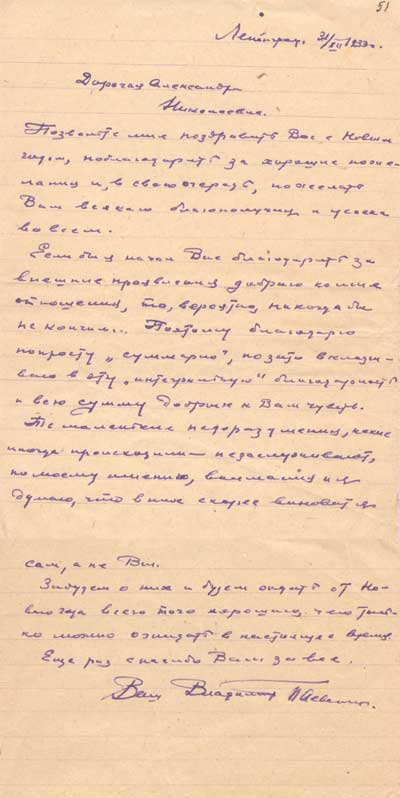 51
Ленинград, 31/XII 1933 г.
Дорогая Александра
Николаевна.
Позвольте мне поздравить Вас с Новым
годом, поблагодарить за хорошие поже-
лания и, в свою очередь, пожелать
Вам всякого благополучия и успеха
во всем.
Если бы я начал Вас благодарить за
внешние проявления доброго ко мне
отношения, то, вероятно, никогда бы
не кончил. Поэтому благодарю
попросту „суммарно", но зато вклады-
ваю в эту „интегральную" благодарность
и всю сумму добрых к Вам чувств.
Те маленькие недоразумения, какие
иногда происходили – незаслуживают,
по моему мнению, внимания и я
думаю, что в них скорее виноват я
сам, а не Вы.
Забудем о них и будем ожидать от Но-
вого года всего того хорошего, чего толь-
ко можно ожидать в настоящее время.
Еще раз спасибо Вам за все.
Ваш Владимир